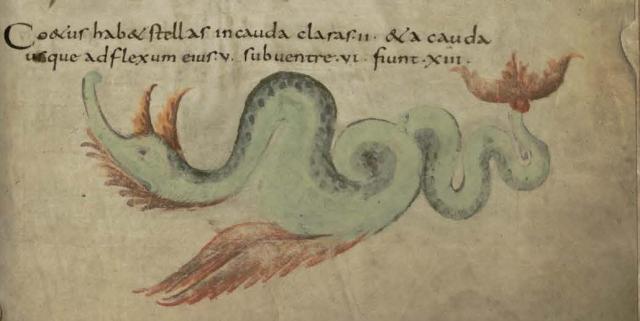 Coetus hab& stellas in cauda claras·ii· & a cauda
usque ad flexum eius·v· sub uentre·vi· fiunt·xiii·